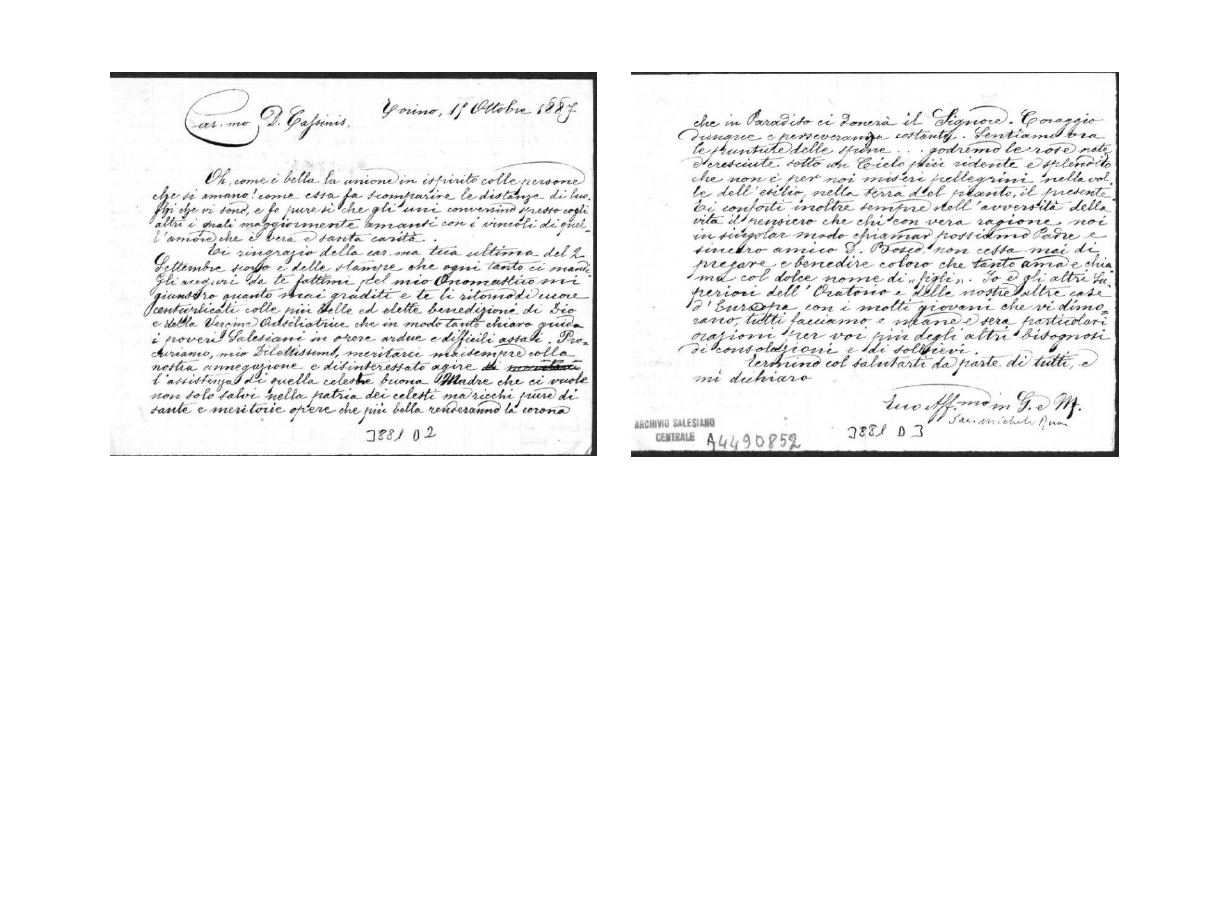 Car.mo D. Cassinis.
Torino, 15 Ottobre 1887
Oh, come è bella la unione in ispirito colle persone
che si amano! come essa fa scomparire le distanze di luo-
ghi che vi sono, e fa pure sì che gli uni conversino spesso cogli
altri i quali maggiormente amansi con i vincoli di quel-
l'amore che è vera e santa carità.
Ti ringrazio della car.ma tua ultima del 2
Settembre scorso e delle stampe che ogni tanto ci mandi.
Gli auguri da te fattimi pel mio Onomastico mi
giunsero quanto mai graditi e te li ritorno di cuore
centuplicati colle più belle ed elette benedizione di Dio
e della Vergine Ausiliatrice che in modo tanto chiaro guida
i poveri Salesiani in opere ardue e difficili assai. Pro-
curiamo, mio Dilettissimo, meritarci maisempre colla
nostra annegazione e disinteressato agire
l'assistenza di quella celeste buona Madre che ci vuole
non solo salvi nella patria dei celesti ma ricchi pure di
sante e meritorie opere che più bella renderanno la corona
3881 D 2
che in Paradiso ci donerà il Signore. Coraggio
dunque e perseveranza costante. Sentiamo ora
le punture delle spine ... godremo le rose nate
e cresciute sotto un Cielo più ridente e splendido
che non è per noi miseri pellegrini nella val-
le dell'esilio, nella terra del pianto, il presente.
Ti conforti inoltre sempre nell'avversità della
vita il pensiero che chi con vera ragione noi
in singolar modo chiamar possiamo Padre e
sincero amico D. Bosco non cessa mai di
pregare e benedire coloro che tanto ama e chia-
ma col dolce nome di "figli". Io e gli altri Su-
periori dell'Oratorio e delle nostre altre case
d'Europa con i molti giovani che vi dimo-
rano, tutti facciamo e mane e sera particolari
orazioni per voi più degli altri bisognosi
di consolazioni e di sollievi.
Termino col salutarti da parte di tutti, e
mi dichiaro
Tuo Aff.mo in G. e M.
Sac. Michele Rua
ARCHIVIO SALESIANO
CENTRALE
A4490852
3881 D 3